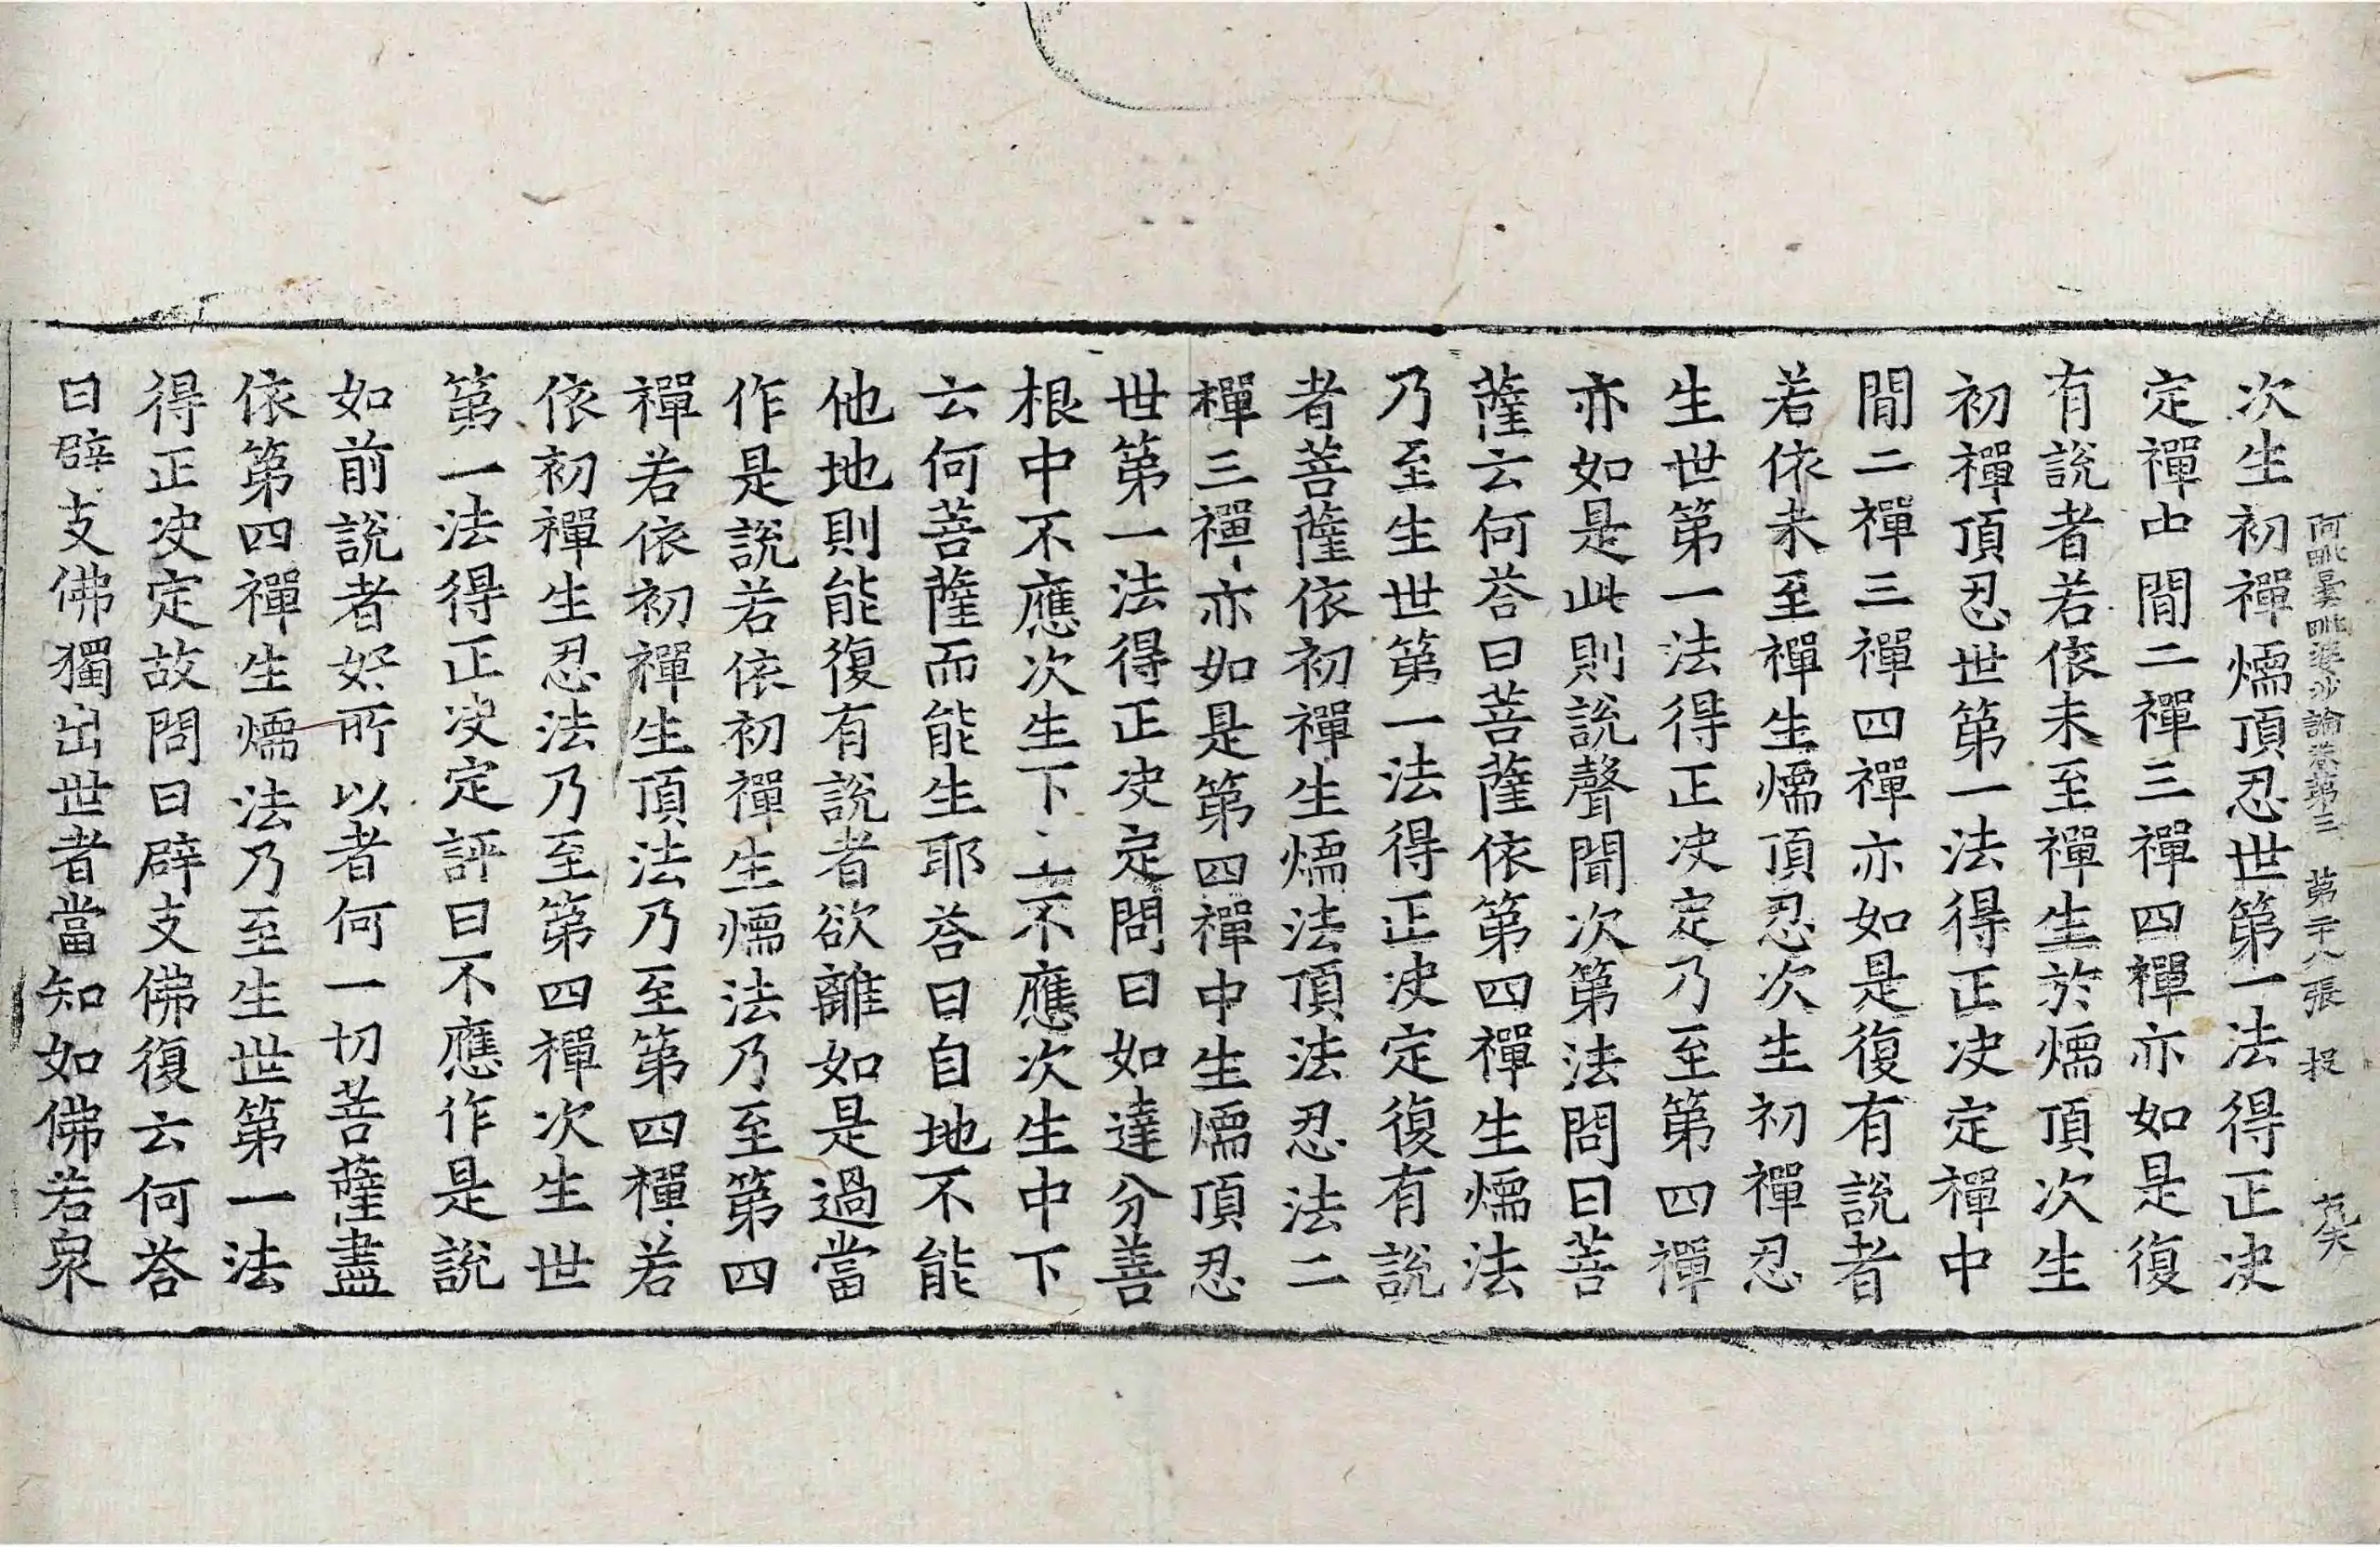 阿毗曇毗婆沙論卷第三 第二十八張 投
次生初禪燸頂忍世第一法得正决
定禪中閒二禪三禪四禪亦如是復
有說者若依未至禪生於燸頂次生
初禪頂忍世第一法得正决定禪中
閒二禪三禪四禪亦如是復有說者
若依未至禪生燸頂忍次生初禪忍
生世第一法得正决定乃至第四禪
亦如是此則說聲聞次第法問曰菩
薩云何荅曰菩薩依第四禪生燸法
乃至生世第一法得正决定復有說
者菩薩依初禪生燸法頂法忍法二
禪三禪亦如是第四禪中生燸頂忍
世第一法得正决定問曰如達分善
根中不應次生下上不應次生中下
云何菩薩而能生耶荅曰自地不能
他地則能復有說者欲離如是過當
作是說若依初禪生燸法乃至第四
禪若依初禪生頂法乃至第四禪若
依初禪生忍法乃至第四禪次生世
第一法得正决定評曰不應作是說
如前說者好所以者何一切菩薩盡
依第四禪生燸法乃至生世第一法
得正决定故問曰辟支佛復云何荅
曰辟支佛獨出世者當知如佛若衆